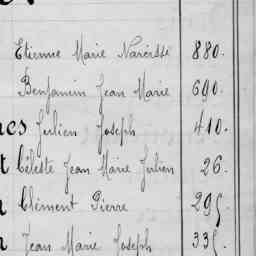 Etienne Marie Narcisse 880.
Benjamin Jean Marie 690.
es Julien Joseph 410.
t Céleste Jean Marie Julien 26.
Clément Pierre 295.
Jean Marie Joseph 335.